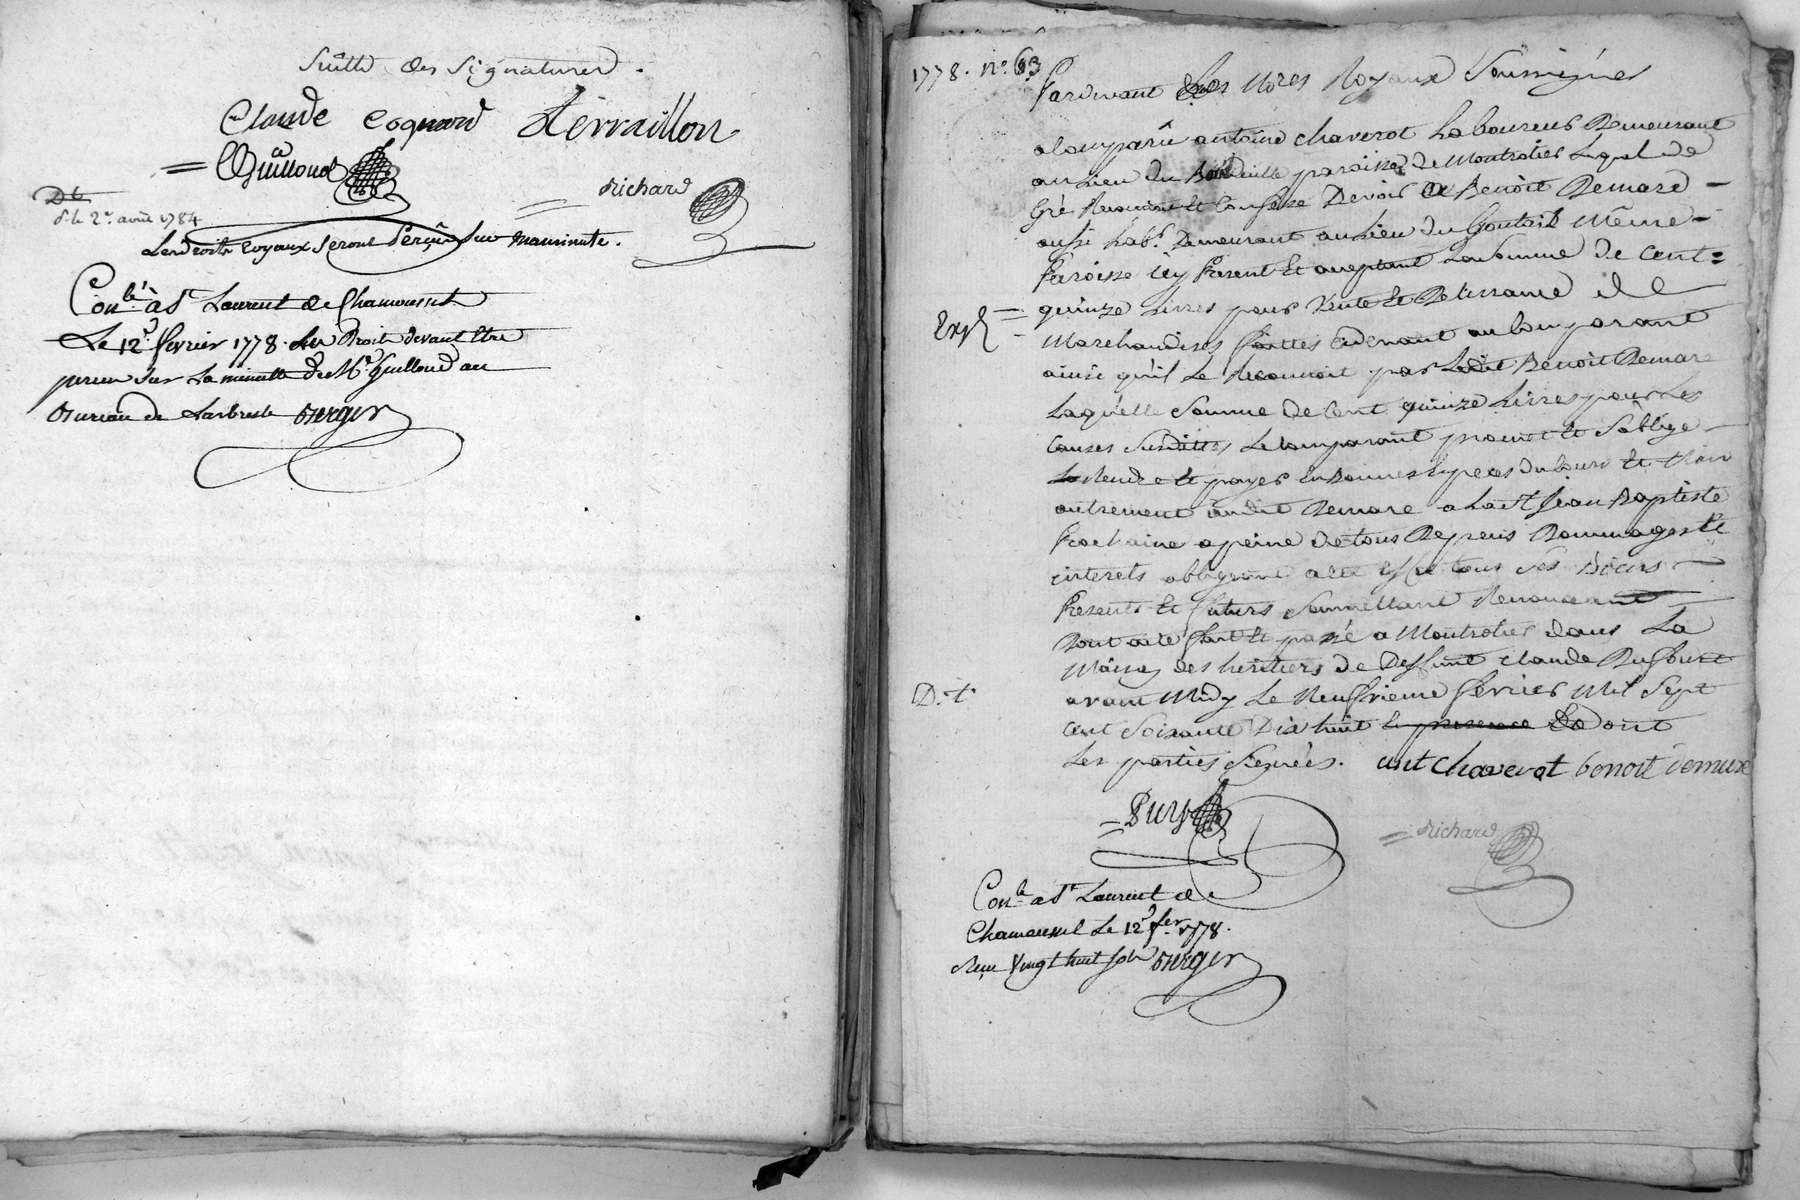 Suitte des Signatures.
Claude coquard Terraillon
Guilloud
Richard
Dt
d. le 2e. août 1784
Les droits royaux seront Perçûs sur ma minute.
Conlé à St Laurent de Chamousset
Le 12e. fevrier 1778. les Droits devant Etre
percus sur La minutte de Me Guilloud au
Bureau de Larbresle Berger
1778. no. 63
Pardevant Les No.res Royaux Soussignés
a Comparû antoine chaverot Laboureur Demeurant
au Lieu du paroisse de Montrotier Lequel de
Gré Reconnoit et Confesse Devoir a Benoit Demare
aussi Lab.r Demeurant au Lieu du Goutail Même
Paroisse icy Present et acceptant La Somme de Cent
quinze Livres pour Vente et Delivrance de
Expé
Marchandises faittes cidevant au Comparant
ainsi qu'il Le Reconnoit par Ledit Benoit Demare
Laquelle Somme de Cent quinze Livres pour Les
Causes Susdittes Le Comparant promet et S'oblige
Rendre et payer en Bonnes Especes du Cours et Non
autrement audit Demare a La St Jean Baptiste
Prochaine a peine de tous Depens Dommages et
interets obligeant a cet Effet tous Ses Biens
Presents et futurs Soumettant Renonceant
Dont acte fait et passé a Montrotier dans La
Maison des heritiers de Deffunt Claude Dufour
D. t.
avant Midy Le Neufvieme fevrier Mil Sept
Cent Soixante Dix huit Et Ont
Les parties Signées. ant chaverot benoit demare
Richard
Conlé a St Laurent de
Chamousset Le 12e fer 1778.
Reçu Vingt huit sols Berger